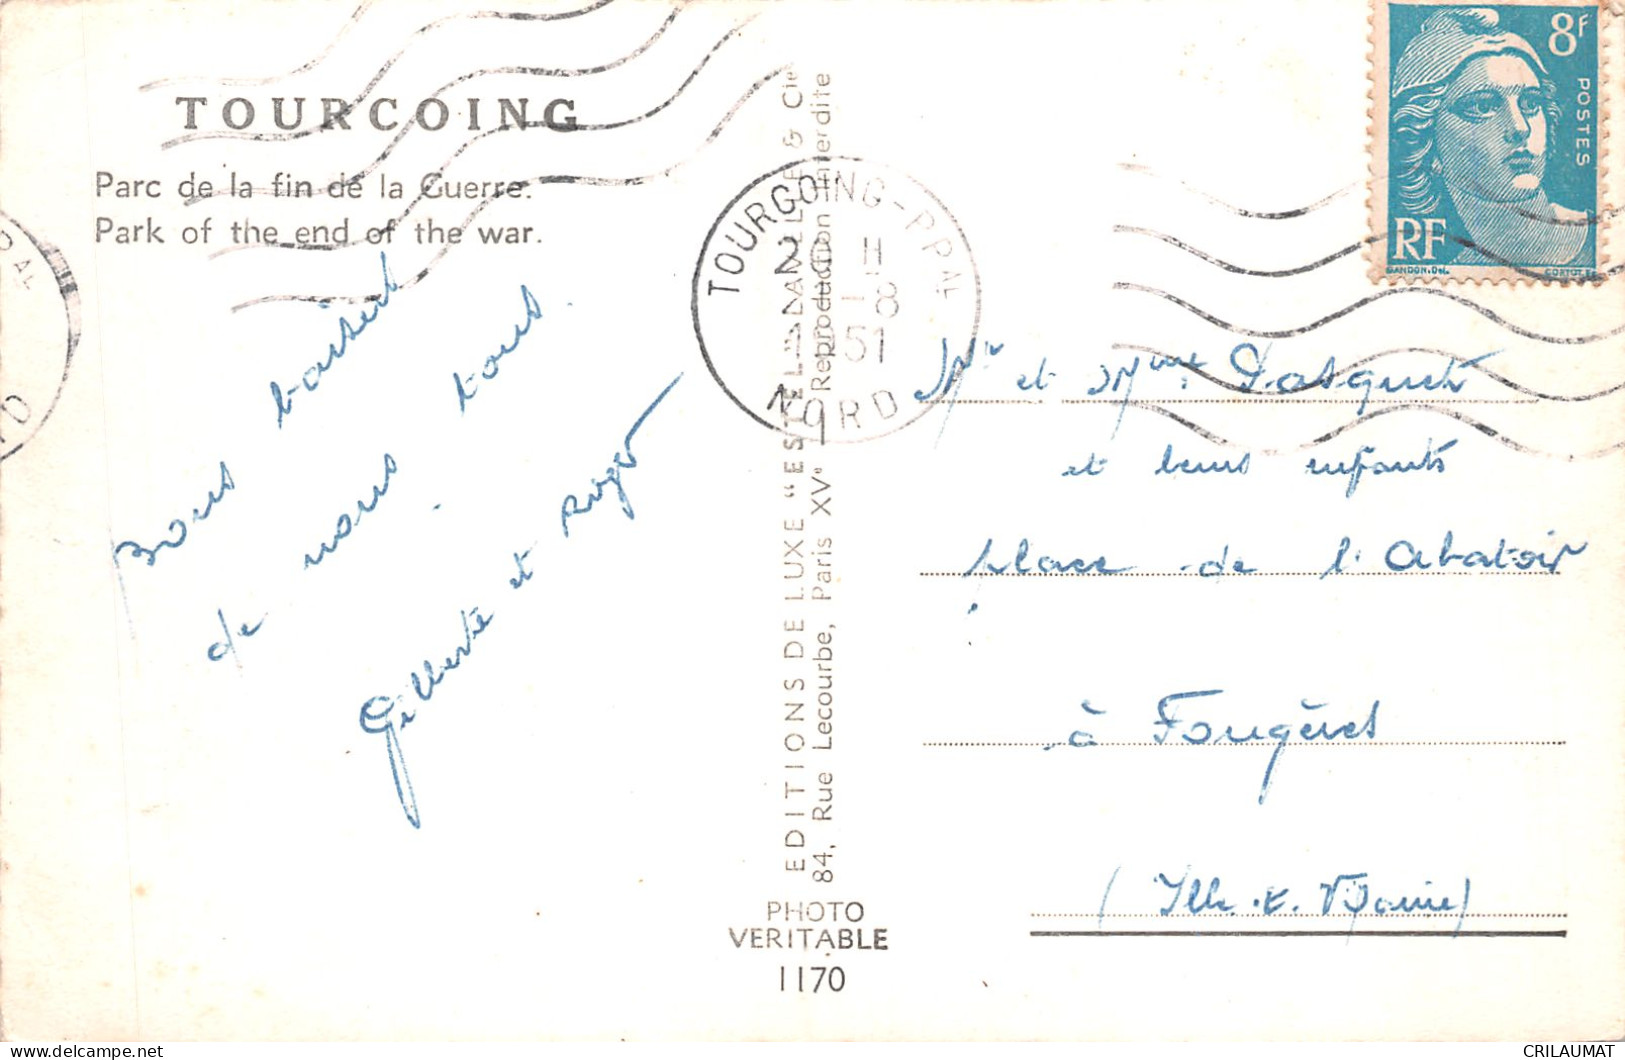 TOURCOING
Parc de la fin de la Guerre.
Park of the end of the war.
Bons baisers
de nous tous.
Gilberte et Roger
EDITIONS DE LUXE "ESTEL" & Cie
84, Rue Lecourbe, Paris XVe Reproduction interdite
PHOTO
VERITABLE
1170
TOURCOING-PPAL
20 H
1-8
1951
NORD
PAL
8F
POSTES
RF
GANDON.Del.
Mr et Mme
et leurs enfants
place de l'abatoir
à Fougères
(Ille. et. Vilaine)
CRILAUMAT